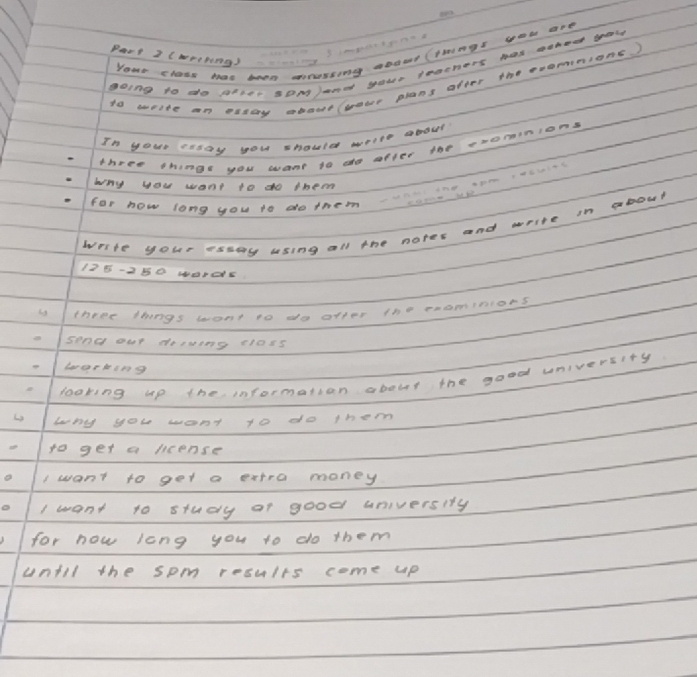 Part 2 (writing)
Your class has been discussing about (things you are
going to do after SPM) and your teachers has asked you
to write an essay about (your plans after the examinions)
In your essay you should write about:
• three things you want to do after the examinions
• why you want to do them
• for how long you to do them
Write your essay using all the notes and write in about
125-250 words.
↳ three things want to do after the examinions
send out driving class
working
looking up the information about the good university.
↳ why you want to do them
to get a license
I want to get a extra money
I want to study at good university
for how long you to do them
until the SPM results come up